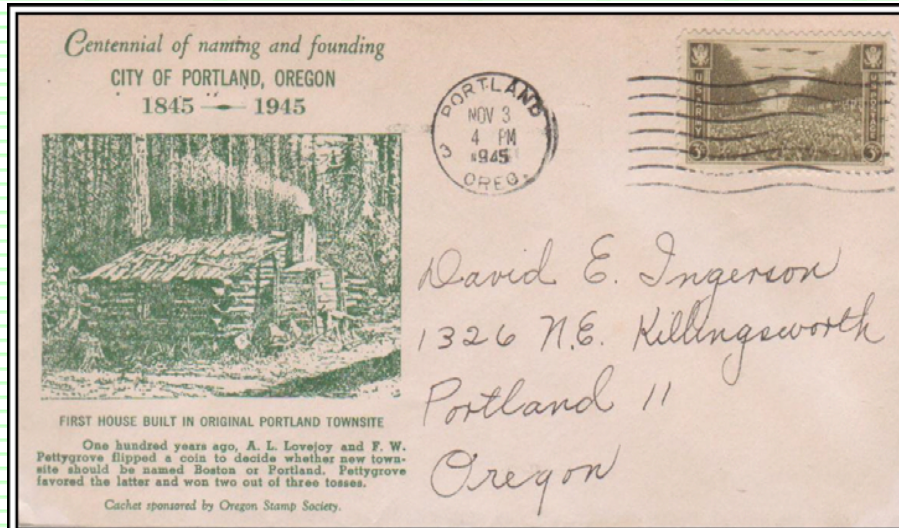 Centennial of naming and founding
CITY OF PORTLAND, OREGON
1845 — 1945
FIRST HOUSE BUILT IN ORIGINAL PORTLAND TOWNSITE
One hundred years ago, A. L. Lovejoy and F. W.
Pettygrove flipped a coin to decide whether new town-
site should be named Boston or Portland. Pettygrove
favored the latter and won two out of three tosses.
Cachet sponsored by Oregon Stamp Society.
PORTLAND
NOV 3
4 PM
1945
OREG.
3¢
David E. Ingerson
1326 N.E. Killingsworth
Portland 11
Oregon